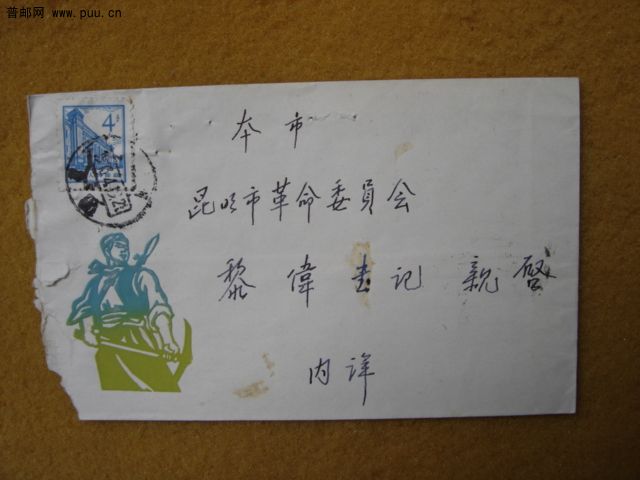 普邮网 www.puu.cn
4分
本市
昆明市革命委員会
黎偉书记 親啓
内详